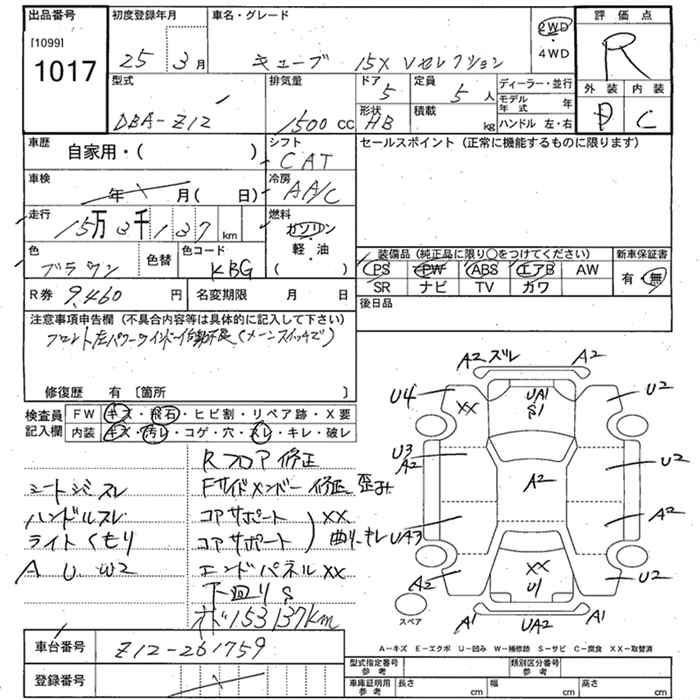 出品番号 初度登録年月 車名・グレード 評価点
[1099]
1017
25 3月 キューブ 15X Vセレクション 2WD ・ 4WD R
型式 排気量 ドア 定員 ディーラー・並行 外装 内装
DBA-Z12 1500cc 5 5人 モデル年式 年 D C
形状 積載 ハンドル 左・右
HB kg
車歴 シフト セールスポイント（正常に機能するものに限ります）
自家用・（ ） CAT
車検 冷房
年 月（ 日） AA/C
走行 燃料
15万3千137 km ガソリン ・ 軽・油 ・ （ ）
色 色替 色コード 装備品（純正品に限り○をつけてください） 新車保証書
ブラウン KBG PS PW ABS エアB AW 有・無
SR ナビ TV カワ
R券 9,460円 名変期限 月 日 後日品
注意事項申告欄（不具合内容等は具体的に記入して下さい）
フロント左パワーウインドー作動不良(メーンスイッチで)
修復歴 有〔箇所 〕
検査員記入欄 FW キズ・飛石・ヒビ割・リペア跡・X要
内装 キズ・汚レ・コゲ・穴・スレ・キレ・破レ
A2 ズレ A2
U4 XX UA1 S1 U2
U3 A2 A2 U2
UA3 A2
A2 XX U1 U2
A1 UA2 A1
スペア
Rフロア修正
シートジミスレ Fサイドメンバー修正 歪み
ハンドルスレ コアサポート XX
ライトくもり コアサポート 曲り・キレ
A U W2 エンドパネルXX
下回りS
メボ153137km
A－キズ E－エクボ U－凹み W－補修跡 S－サビ C－腐食 XX－取替済
車台番号 Z12-261759
登録番号
型式指定番号 参考 類別区分番号 参考
車庫証明用 参考 長さ cm 幅 cm 高さ cm